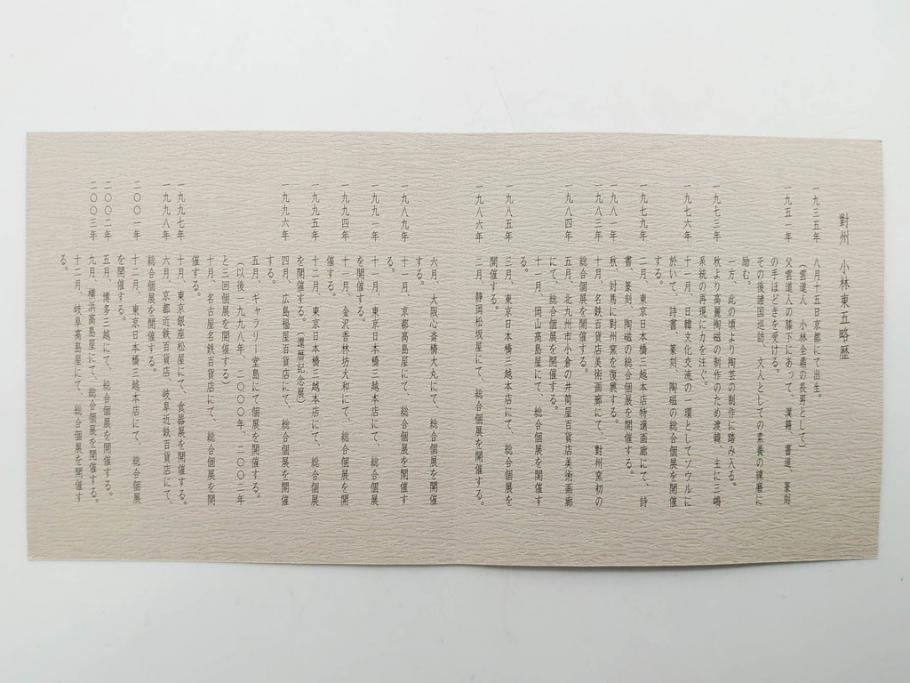 對州 小林東五略歴
一九三五年 八月十五日京都にて出生。
(雲道人 小林全鼎の長男として)
一九五一年 父雲道人の膝下にあって、漢籍、書道、篆刻
の手ほどきを受ける。
その後諸国巡訪、文人としての素養の練磨に
励む。
一方、此の頃より陶芸の制作に踏み入る。
一九七三年 秋より高麗陶磁の制作のため渡韓、主に三嶋
系統の再現に力を注ぐ。
一九七六年 十一月、日韓文化交流の一環としてソウルに
於いて、詩書、篆刻、陶磁の総合個展を開催
する。
一九七九年 二月、東京日本橋三越本店特選画廊にて、詩
書、篆刻、陶磁の総合個展を開催する。
一九八一年 秋、対馬に對州窯を復興する。
一九八三年 十月、名鉄百貨店美術画廊にて、對州窯初の
総合個展を開催する。
一九八四年 五月、北九州市小倉の井筒屋百貨店美術画廊
にて、総合個展を開催する。
十一月、岡山髙島屋にて、総合個展を開催す
る。
一九八五年 三月、東京日本橋三越本店にて、総合個展を
開催する。
一九八六年 三月、静岡松坂屋にて、総合個展を開催する。
六月、大阪心斎橋大丸にて、総合個展を開催
する。
一九八九年 十一月、京都髙島屋にて、総合個展を開催す
る。
一九九一年 十一月、東京日本橋三越本店にて、総合個展
を開催する。
一九九四年 十一月、金沢香林坊大和にて、総合個展を開
催する。
一九九五年 十二月、東京日本橋三越本店にて、総合個展
を開催する。(還暦記念展)
一九九六年 四月、広島福屋百貨店にて、総合個展を開催
する。
五月、ギャラリー堂島にて個展を開催する。
(以後一九九八年、二〇〇〇年、二〇〇二年
と三回個展を開催する)
十月、名古屋名鉄百貨店にて、総合個展を開
催する。
一九九七年 十月、東京銀座松屋にて、食器展を開催する。
一九九八年 六月、京都近鉄百貨店、岐阜近鉄百貨店にて、
総合個展を開催する。
二〇〇一年 十二月、東京日本橋三越本店にて、総合個展
を開催する。
二〇〇二年 五月、博多三越にて、総合個展を開催する。
二〇〇三年 九月、横浜髙島屋にて、総合個展を開催する。
十二月、岐阜髙島屋にて、総合個展を開催す
る。